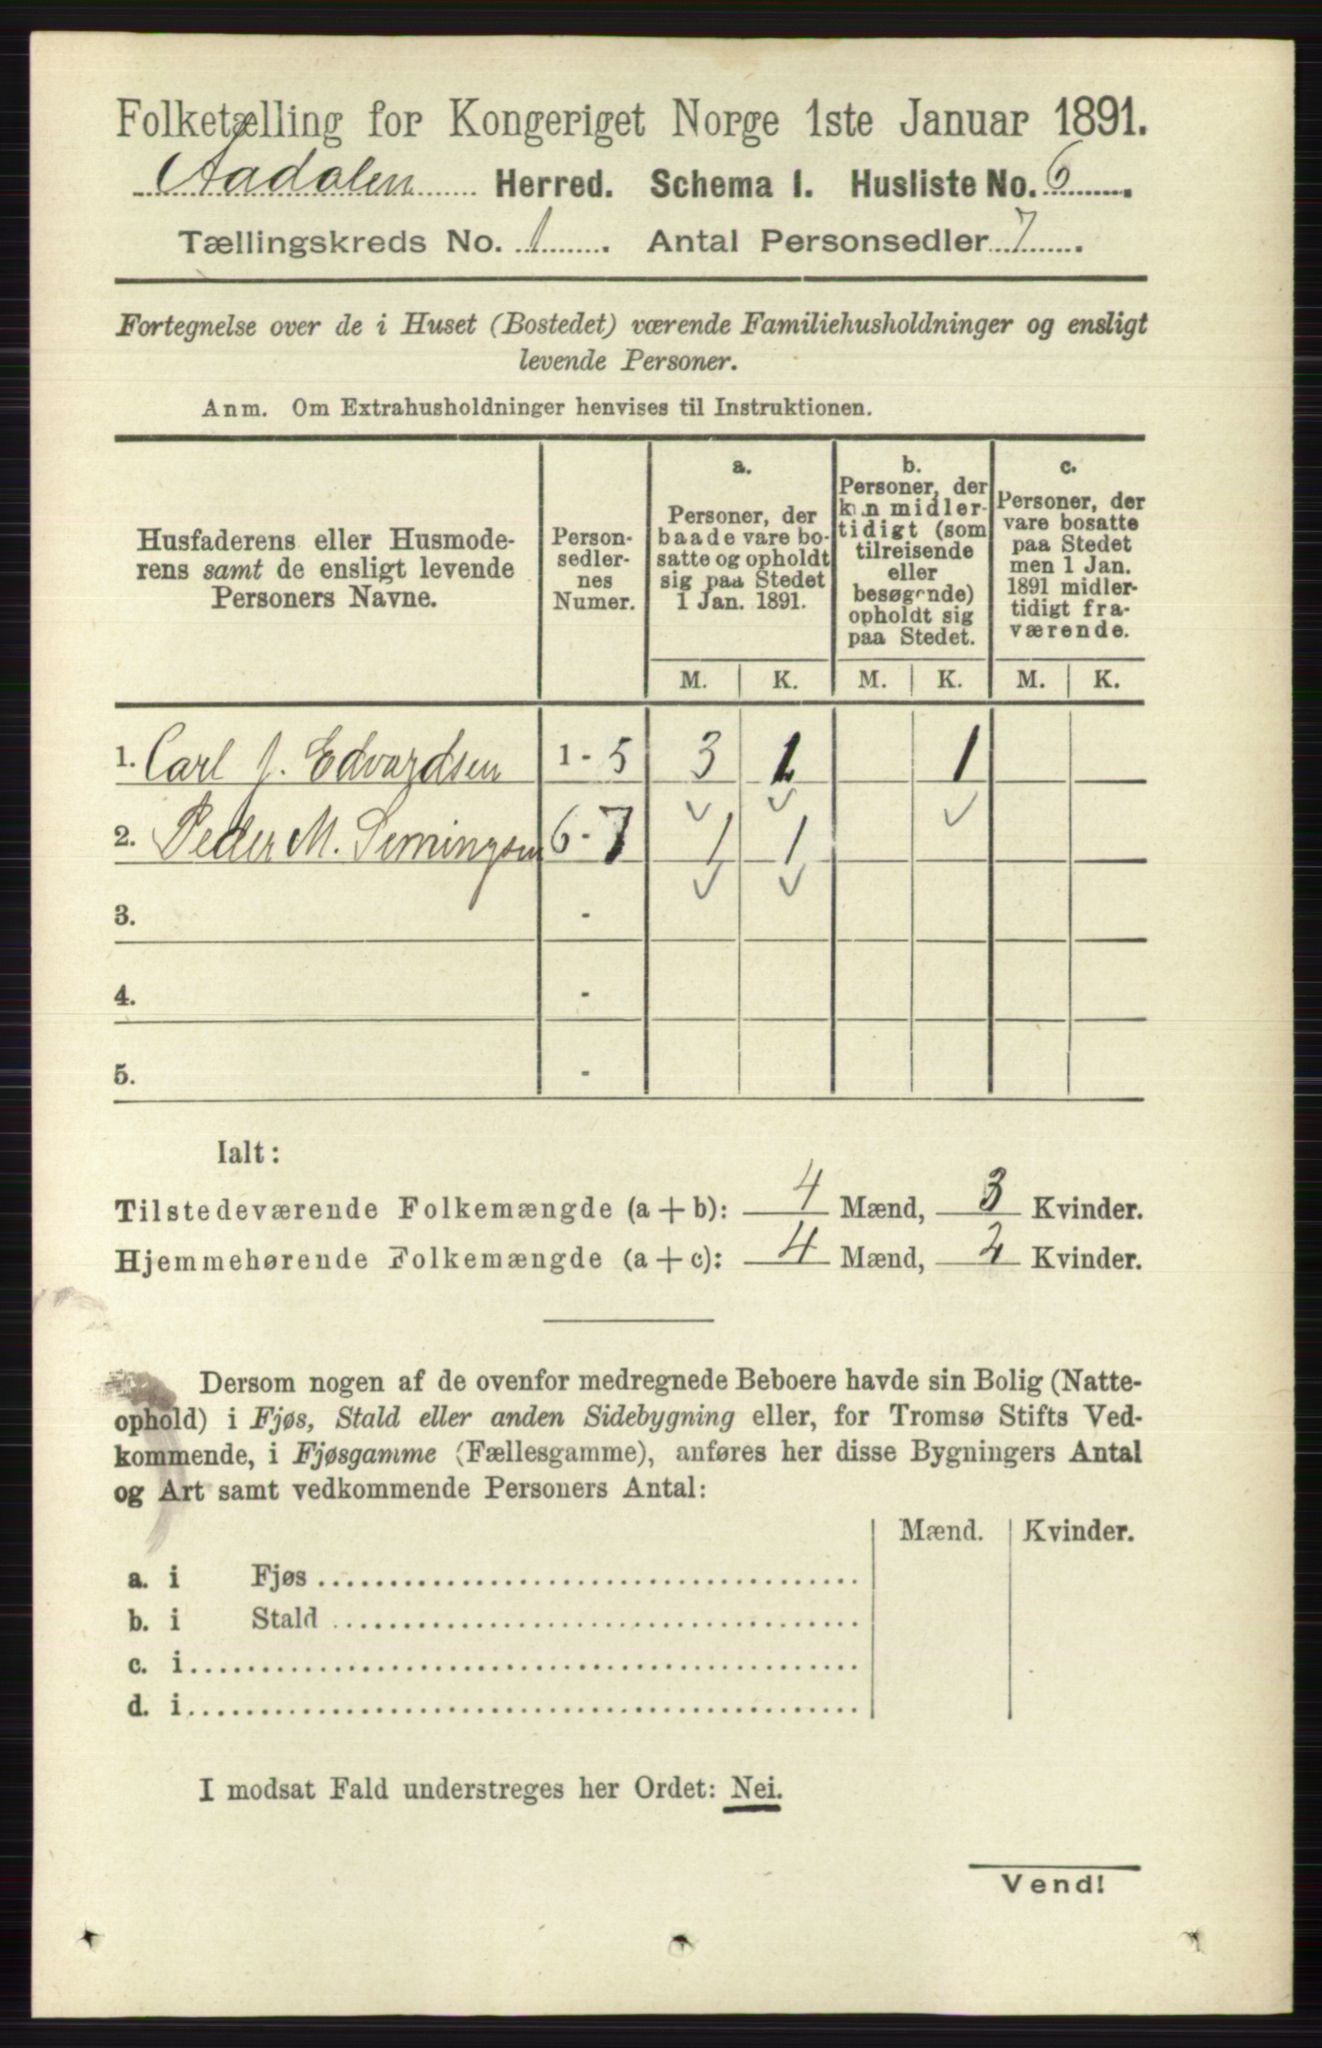 Folketælling for Kongeriget Norge 1ste Januar 1891.
Aadalen Herred. Schema 1. Husliste No. 6
Tællingskreds No. 1. Antal Personsedler 7.
Fortegnelse over de i Huset (Bostedet) værende Familiehusholdninger og ensligt
levende Personer.
Anm. Om Extrahusholdninger henvises til Instruktionen.
Husfaderens eller Husmode-
rens samt de ensligt levende
Personers Navne.
Person-
sedler-
nes
Numer.
a.
Personer, der
baade vare bo-
satte og opholdt
sig paa Stedet
1 Jan. 1891.
b.
Personer, der
kun midler-
tidigt (som
tilreisende
eller
besøgende)
opholdt sig
paa Stedet.
c.
Personer, der
vare bosatte
paa Stedet
men 1 Jan.
1891 midler-
tidigt fra-
værende.
M. K. M. K. M. K.
1. Carl J. Edvardsen 1 - 5 3 1 1
2. Peder M. 6 - 7 1 1
3. -
4. -
5. -
Ialt:
Tilstedeværende Folkemængde (a + b): 4 Mænd, 3 Kvinder.
Hjemmehørende Folkemængde (a + c): 4 Mænd, 2 Kvinder.
Dersom nogen af de ovenfor medregnede Beboere havde sin Bolig (Natte-
ophold) i Fjøs, Stald eller anden Sidebygning eller, for Tromsø Stifts Ved-
kommende, i Fjøsgamme (Fællesgamme), anføres her disse Bygningers Antal
og Art samt vedkommende Personers Antal:
Mænd. Kvinder.
a. i Fjøs
b. i Stald
c. i
d. i
I modsat Fald understreges her Ordet: Nei.
Vend!